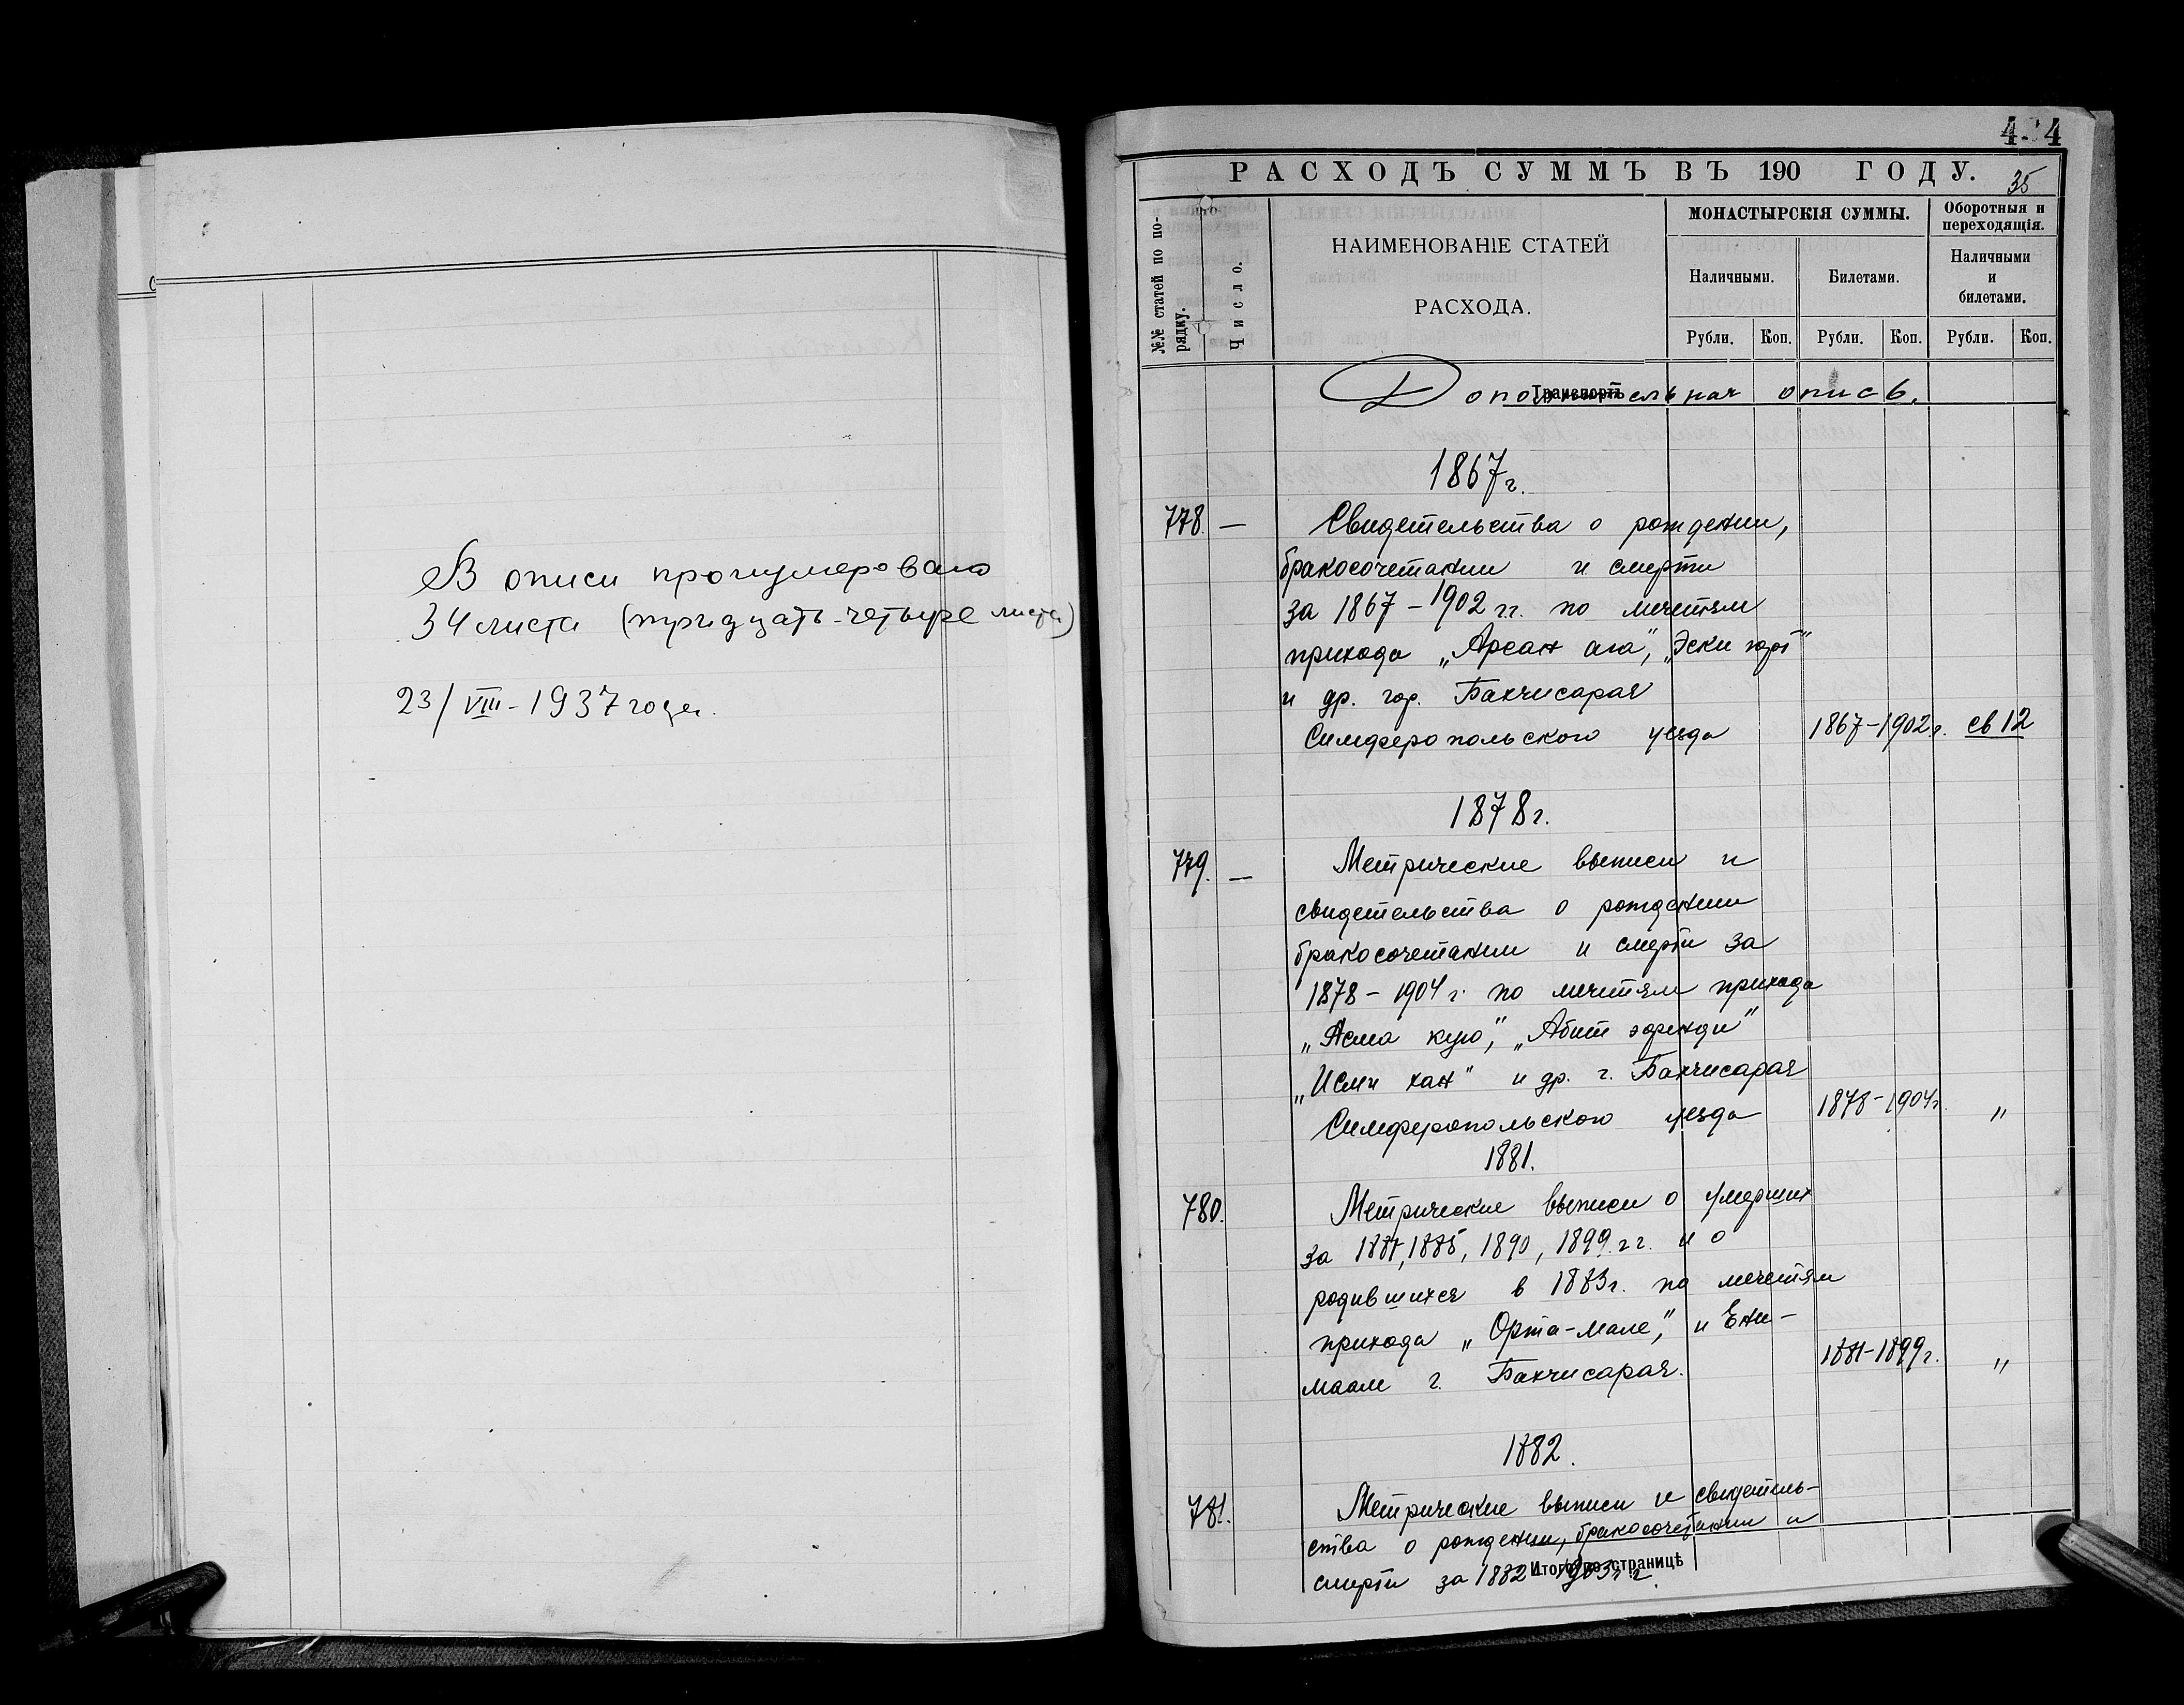 В описи пронумеровано
34 листа (тридцать-четыре листа)
23/VIII-1937 года.
4-4
РАСХОДЪ СУММЪ ВЪ 190 ГОДУ.
35
№№ статей по порядку.
Число.
НАИМЕНОВАНІЕ СТАТЕЙ
РАСХОДА.
МОНАСТЫРСКІЯ СУММЫ.
Оборотныя и
переходящія.
Наличными.
Билетами.
Наличными
и
билетами.
Рубли. Коп. Рубли. Коп. Рубли. Коп.
Транспортъ
Дополнительная опись.
1867г.
778. — Свидетельства о рождении,
бракосочетании и смерти
за 1867-1902 гг. по мечетям
прихода „Арсан ага", „Эски юрт"
и др. гор. Бахчисарая
Симферопольского уезда 1867-1902г. св 12
1878г.
779. — Метрические выписи и
свидетельства о рождении
бракосочетании и смерти за
1878-1904 г. по мечетям прихода
„Асма кую", „Абит эфенди"
„Исми хан" и др. г. Бахчисарая
Симферопольского уезда 1878-1904г. "
1881.
780. Метрические выписи о умерших
за 1881, 1885, 1890, 1899 гг. и о
родившихся в 1883г. по мечетям
прихода „Орта-мале", и Ени-
маале г. Бахчисарая. 1881-1899г. "
1882.
781. Метрические выписи и свидетель-
ства о рождении, бракосочетании и
смерти за 1882-1903 гг.
Итого по страницѣ